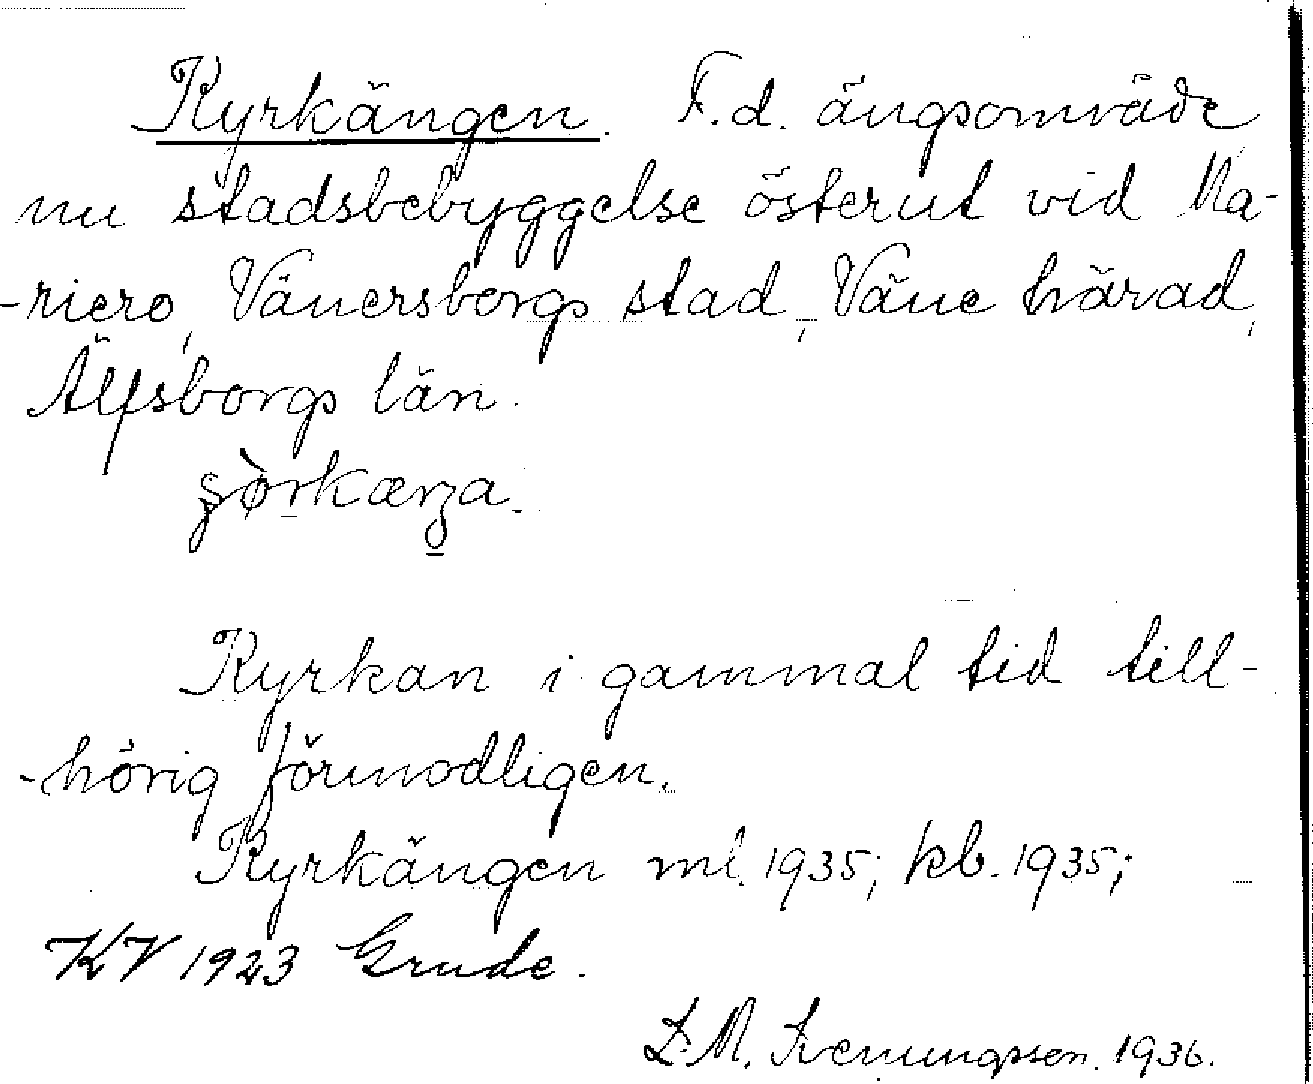 Kyrkängen. F.d. ängsområde
nu stadsbebyggelse österut vid Ma-
-riero, Vänersborgs stad, Väne härad,
Älfsborgs län.
Kyrkan i gammal tid till-
-hörig förmodligen.
Kyrkängen ml. 1935; kb. 1935;
KV 1923 Grude.
1936.